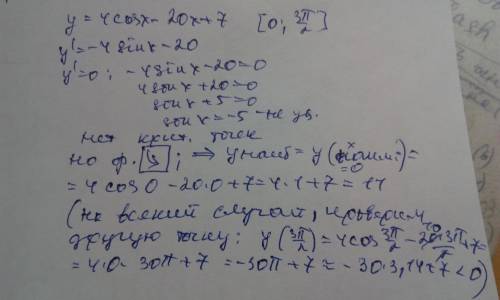 y = 4cosx - 20x + 7 [0; 3π/2]
y' = -4sinx - 20
y' = 0; -4sinx - 20 = 0
4sinx + 20 = 0
sinx + 5 = 0
sinx = -5 - не ув.
нет крит. точек
но ф. ↓; ⇒ y наиб = y(x наим. = 0) =
= 4cos0 - 20·0 + 7 = 4·1 + 7 = 11
(на всякий случай, проверим
другую точку: y(3π/2) = 4cos 3π/2 - 20·3π/2 + 7 =
= 4·0 - 30π + 7 = -30π + 7 ≈ -30·3,14 + 7 < 0)